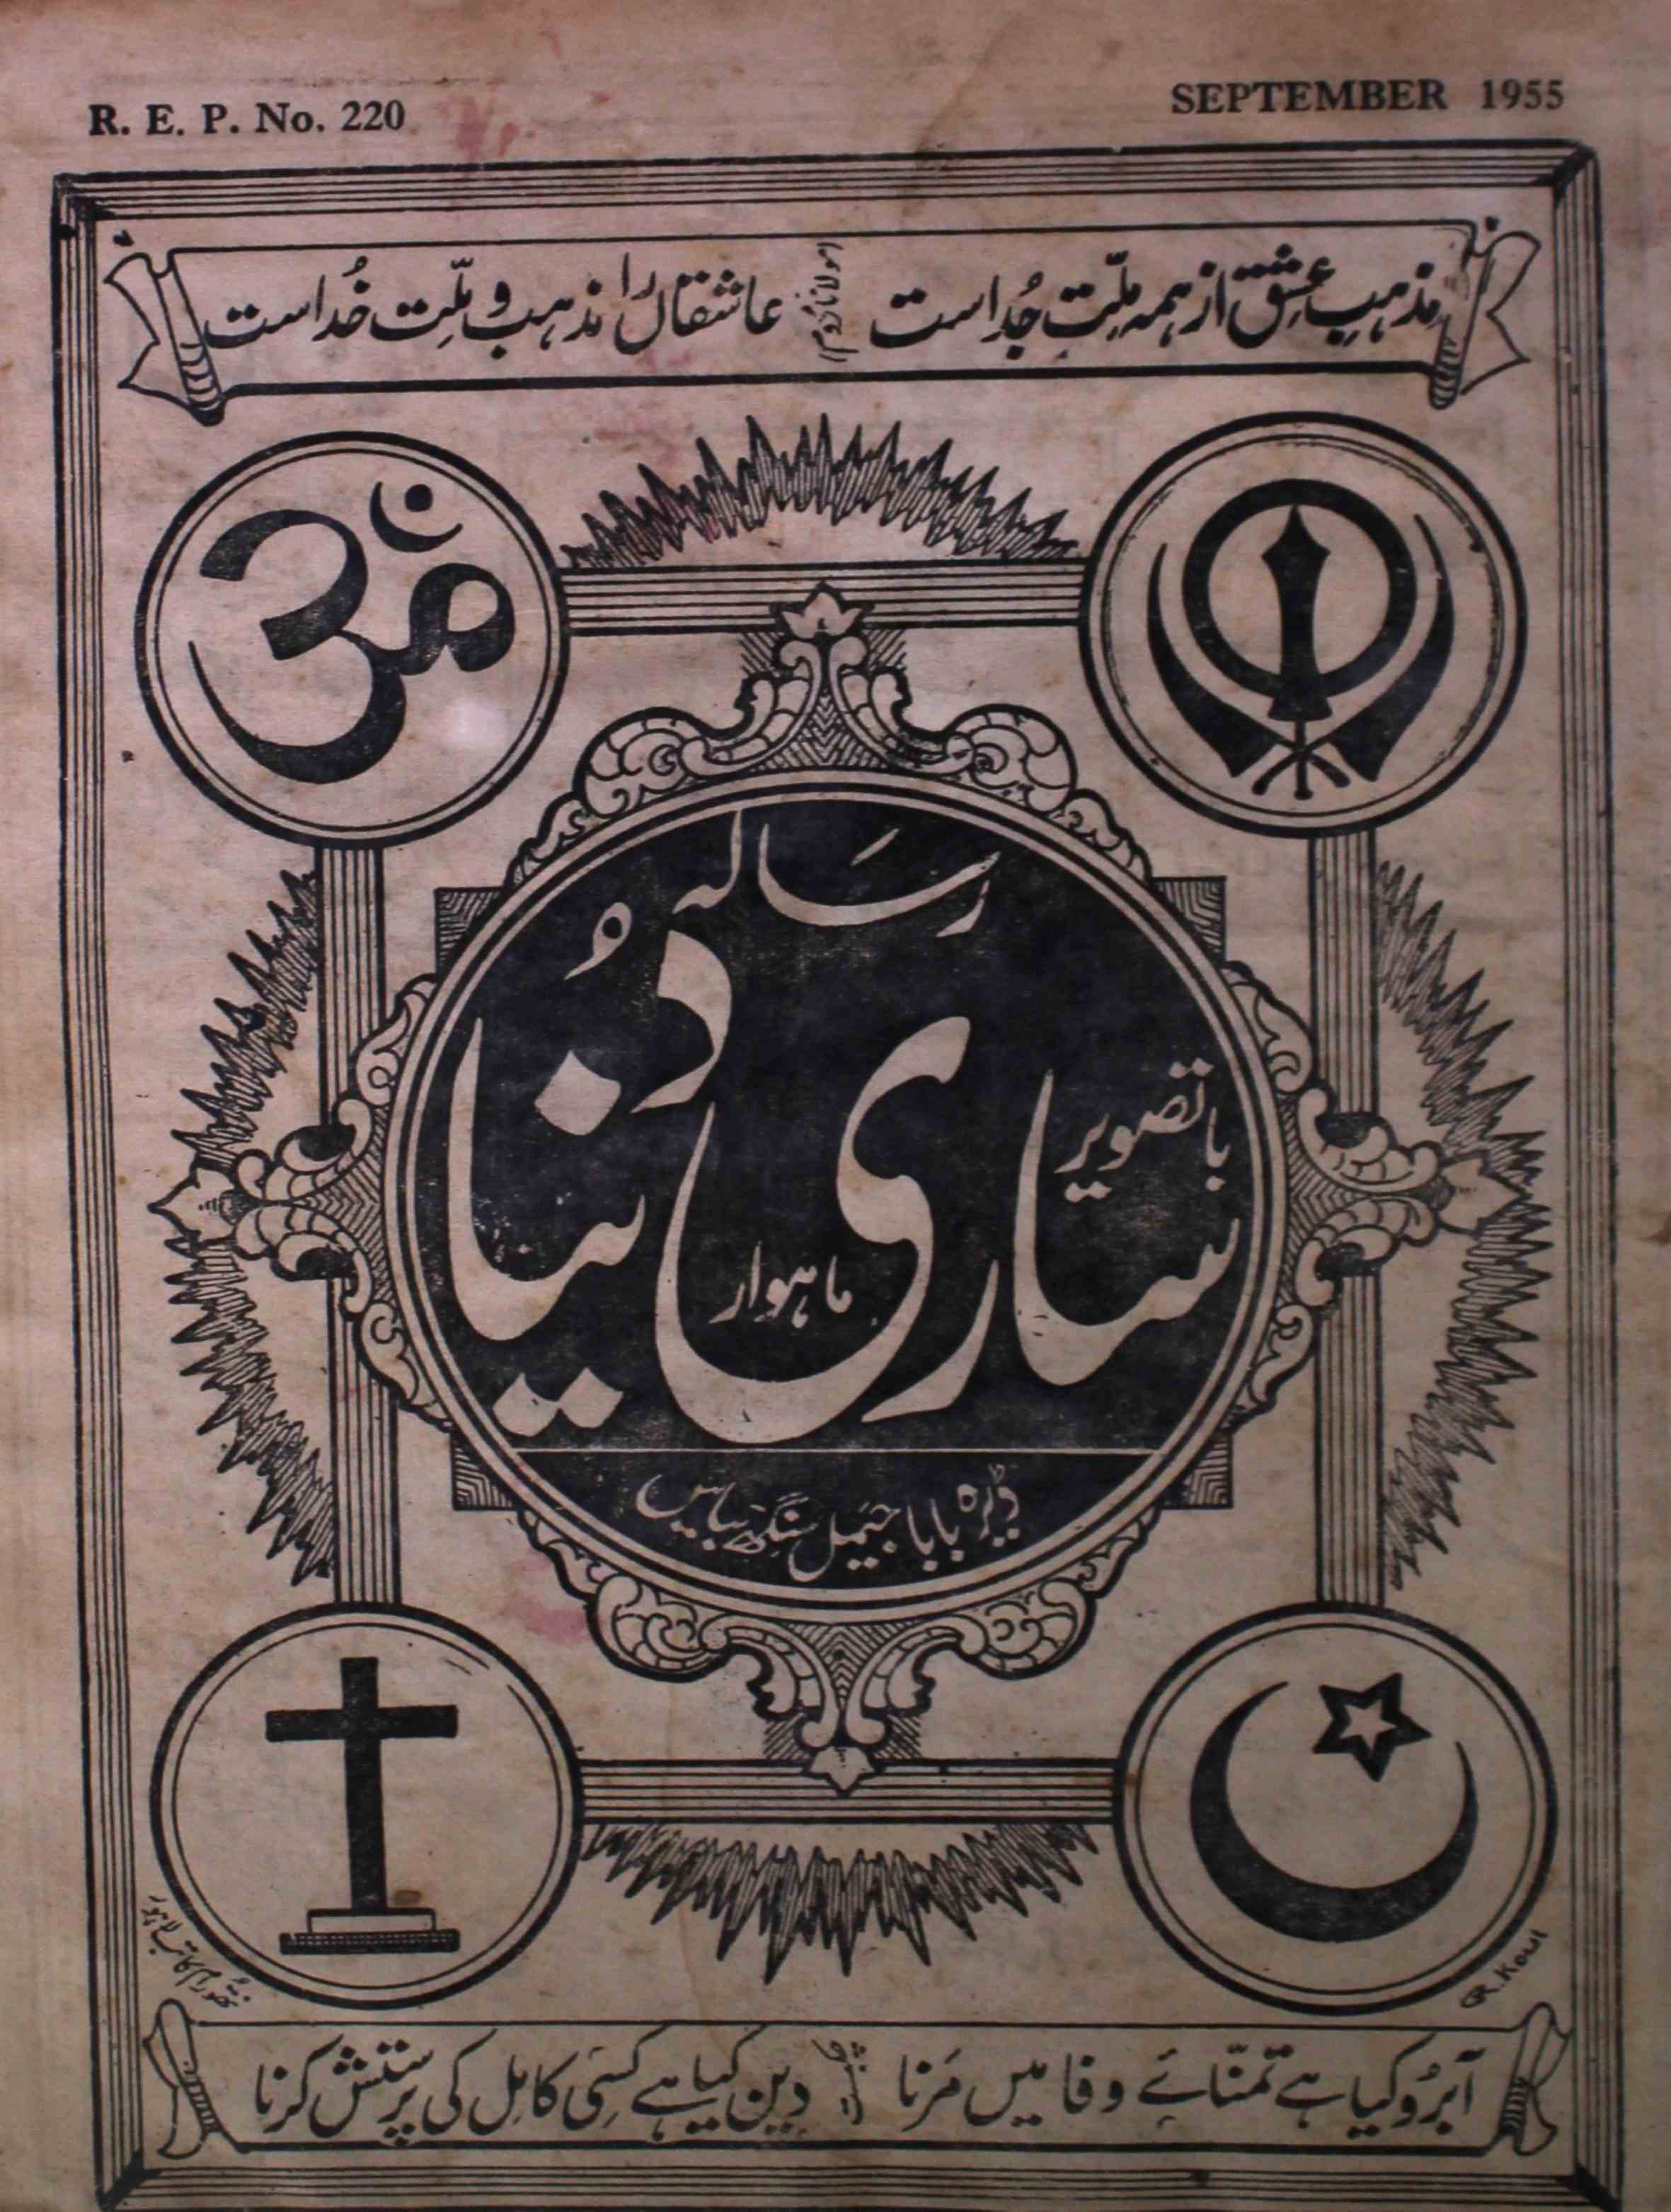 R. E. P. No. 220
SEPTEMBER 1955
مذہبِ عشق از ہمہ مِلّت جُداست (مولانا روم) عاشقاں را مذہب و مِلّت خُداست
رسالہ
باتصویر
ساری دُنیا
ماہوار
ڈیرہ بابا جیمل سنگھ بیاس
G.R. Koul
آبرُو کیا ہے تمنّائے وفا میں مَرنا دِین کیا ہے کسی کامل کی پرستش کرنا